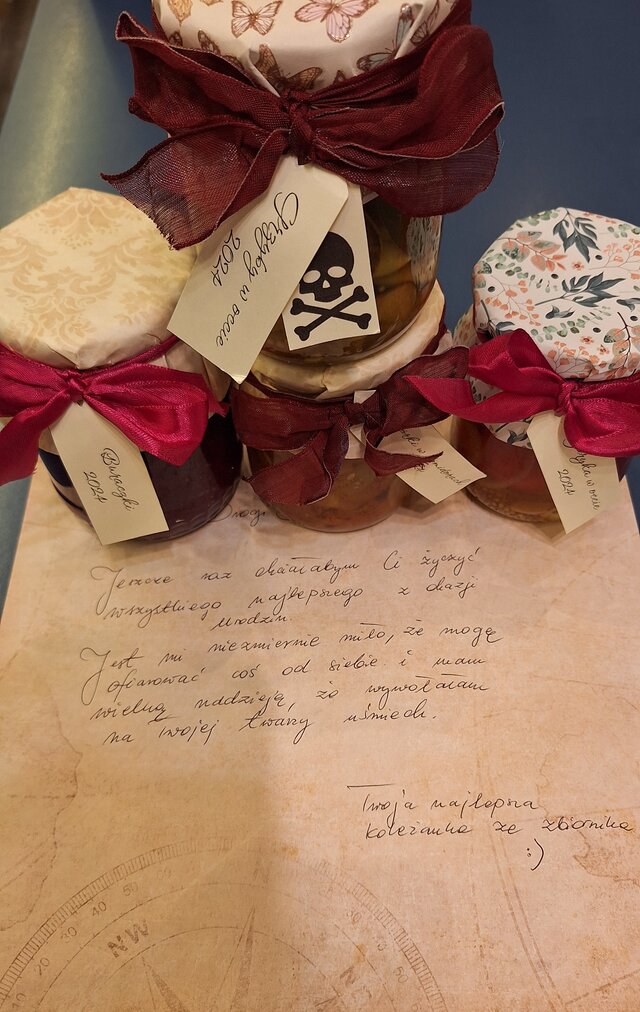 Grzyby w occie
2024
Buraczki
2024
w occie
2024
Drogi
Jeszcze raz chciałabym Ci życzyć
wszystkiego najlepszego z okazji
urodzin.
Jest mi niezmiernie miło, że mogę
ofiarować coś od siebie i mam
wielką nadzieję, że wywołałam
na Twojej twarzy uśmiech.
Twoja najlepsza
koleżanka ze zbiornika
:)
NW
10
20
30
40
50
50
60